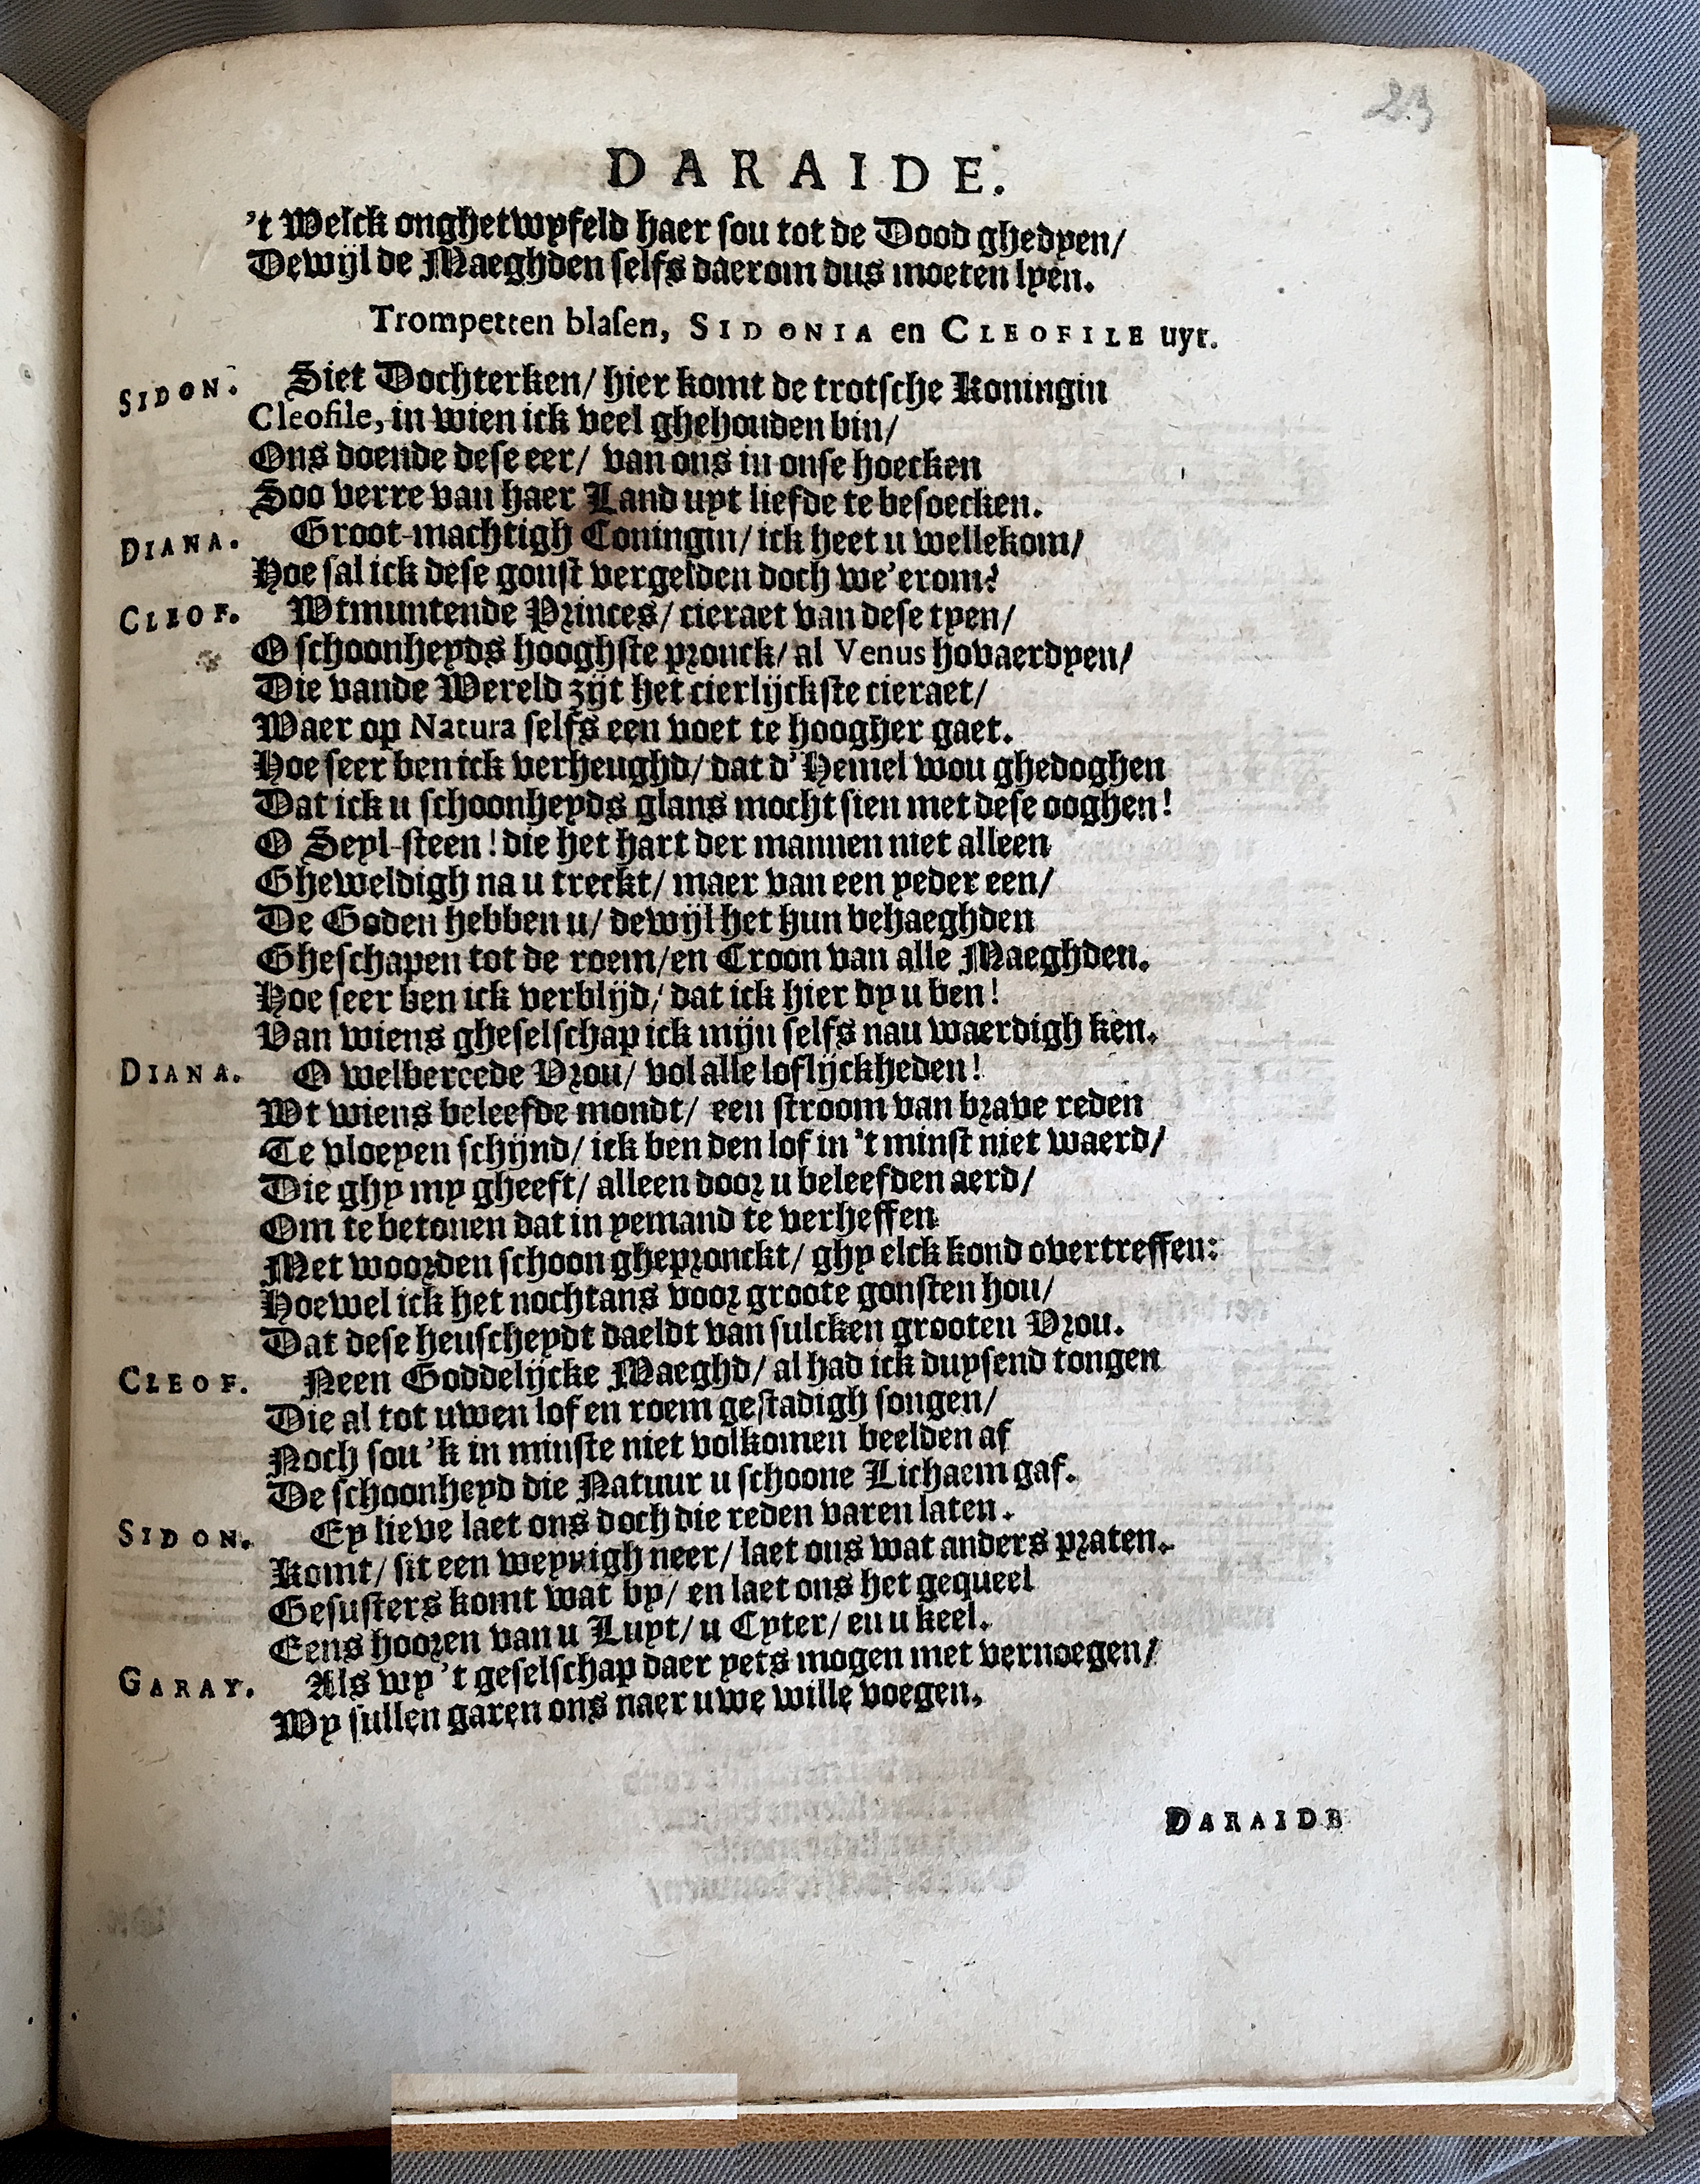 23
DARAIDE.
't Welck onghetwyfeld haer sou tot de Dood ghedyen/
Dewijl de Maeghden selfs daerom dus moeten lyen.
Trompetten blasen, SIDONIA en CLEOFILE uyt.
SIDON. Siet Dochterken/ hier komt de trotsche Koningin
Cleofile, in wien ick veel ghehouden bin/
Ons doende dese eer/ van ons in onse hoecken
Soo verre van haer Land uyt liefde te besoecken.
DIANA. Groot-machtigh Coningin/ ick heet u wellekom/
Hoe sal ick dese gonst vergelden doch we'erom?
CLEOF. Wtmuntende Princes/ cieraet van dese tyen/
O schoonheyds hooghste pronck/ al Venus hovaerdyen/
Die vande Wereld zijt het cierlijckste cieraet/
Waer op Natura selfs een voet te hoogher gaet.
Hoe seer ben ick verheughd/ dat d'Hemel wou ghedoghen
Dat ick u schoonheyds glans mocht sien met dese ooghen!
O Seyl-steen! die het hart der mannen niet alleen
Gheweldigh na u treckt/ maer van een yeder een/
De Goden hebben u/ dewijl het hun behaeghden
Gheschapen tot de roem/ en Croon van alle Maeghden.
Hoe seer ben ick verblijd/ dat ick hier by u ben!
Van wiens gheselschap ick mijn selfs nau waerdigh ken.
DIANA. O welbereede Vrou/ vol alle loflijckheden!
Wt wiens beleefde mondt/ een stroom van brave reden
Te vloeyen schijnd/ ick ben den lof in 't minst niet waerd/
Die ghy my gheeft/ alleen door u beleefden aerd/
Om te betonen dat in yemand te verheffen
Met woorden schoon ghepronckt/ ghy elck kond overtreffen:
Hoewel ick het nochtans voor groote gonsten hou/
Dat dese heuscheydt daeldt van sulcken grooten Vrou.
CLEOF. Neen Goddelijcke Maeghd/ al had ick duysend tongen
Die al tot uwen lof en roem gestadigh songen/
Noch sou 'k in minste niet volkomen beelden af
De schoonheyd die Natuur u schoone Lichaem gaf.
SIDON. Ey lieve laet ons doch die reden varen laten.
Komt/ sit een weynigh neer/ laet ons wat anders praten.
Gesusters komt wat by/ en laet ons het gequeel
Eens hooren van u Luyt/ u Cyter/ en u keel.
GARAY. Als wy 't geselschap daer yets mogen met vernoegen/
Wy sullen garen ons naer uwe wille voegen.
DARAIDE